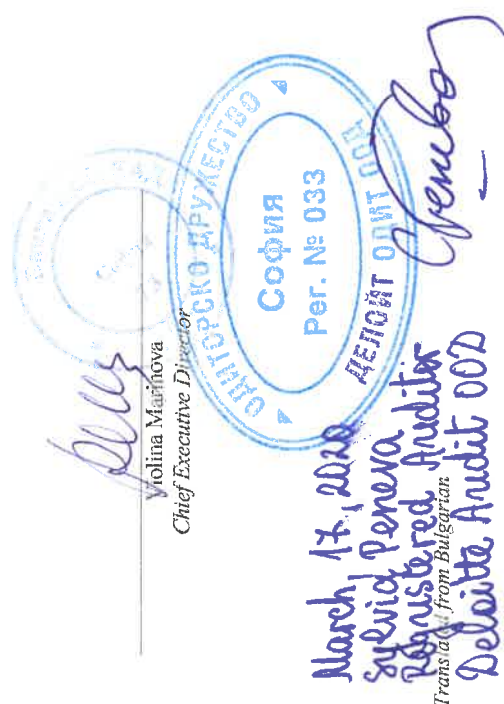 Violina Marinova
Chief Executive Director
ОДИТОРСКО ДРУЖЕСТВО
София
Рег. № 033
ДЕЛОЙТ ОДИТ ООД
March, 17, 2020
Sylvia Peneva
Registered Auditor
Translated from Bulgarian
Deloitte Audit OOD